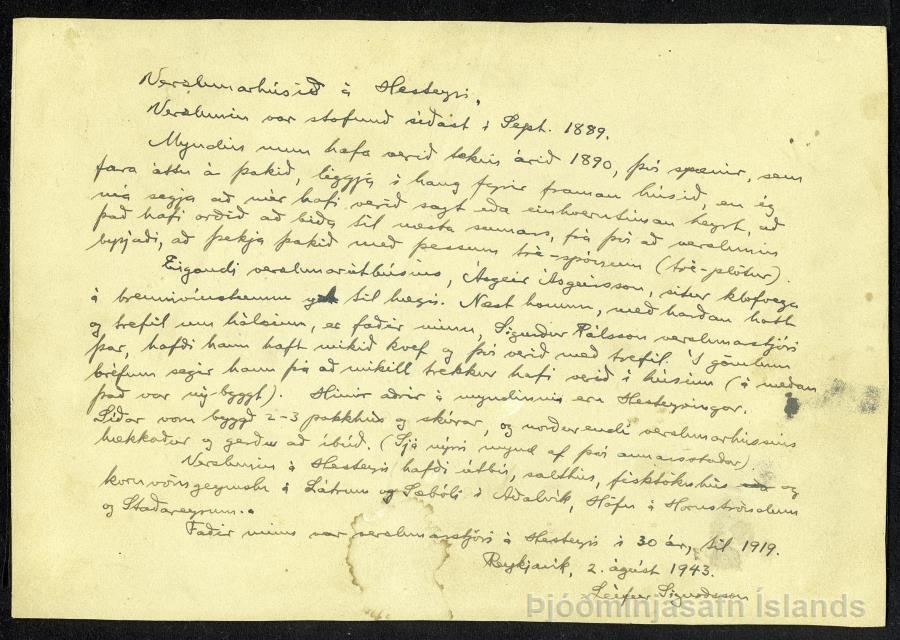 Verslunarhúsið á Hesteyri.
Verslunin var stofnuð síðast í Sept. 1889.
Myndin mun hafa verið tekin árið 1890, því spænir, sem
fara áttu á þakið, liggja í haug fyrir framan húsið, en ég
má segja að mér hafi verið sagt eða einhverntíman heyrt, að
það hafi orðið að bíða til næsta sumars, frá því að verslunin
byrjaði, að þekja þakið með þessum tré-spónum (tré-plötur).
Eigandi verslunarútbúsins, Ásgeir Ásgeirsson, situr klofvega
á brennivínstunnu til hægri. Næst honum, með harðan hatt
og trefil um hálsinn, er faðir minn, Sigurður Pálsson verslunarstjóri
þar, hafði hann haft mikið kvef og því verið með trefil. Í gömlum
bréfum segir hann frá að mikill trekkur hafi verið í húsinu (á meðan
það var ný-byggt). Hinir aðrir á myndinni eru Hesteyringar.
Síðar vom byggð 2-3 pakkhús og skúrar, og norðurendi verslunarhússins
hækkaður og gerður að íbúð. (Sjá nýrri mynd af því annarsstaðar).
Verslunin á Hesteyri hafði útbú, salthús, fisktökuhús og
kornvörugeymslu á Látrum og Sæbóli í Aðalvík, Höfn á Hornströndum
og Staðareyrum.
Faðir minn var verslunarstjóri á Hesteyri í 30 ár, til 1919.
Reykjavík, 2. ágúst 1943.
Sigurðsson
Þjóðminjasafn Íslands